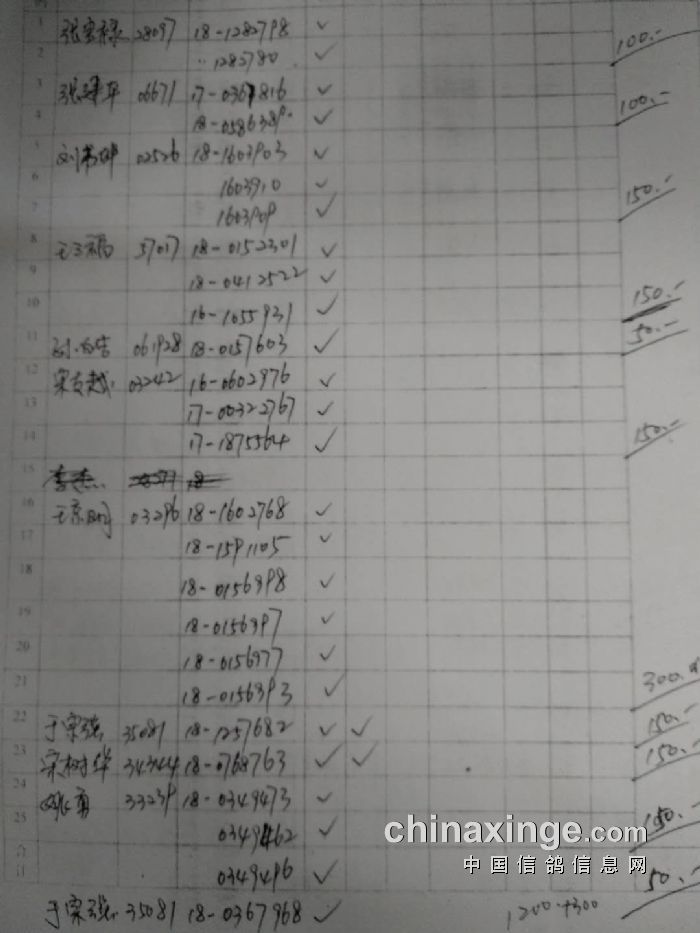 1 28097 18-1282798 ✓
2 1282780 ✓ 100.-
3 张建华 06671 17-0367816 ✓
4 18-0586389 ✓ 100.-
5 02526 18-1603903 ✓
6 1603910 ✓
7 1603909 ✓ 150.-
8 57017 18-0152301 ✓
9 18-0412522 ✓
10 16-1055931 ✓ 150.-
11 061928 18-0157603 ✓ 50.-
12 03242 16-0602976 ✓
13 17-00322767 ✓
14 17-1875564 ✓ 150.-
15
16 03296 18-1602768 ✓
17 18-1591105 ✓
18 18-0156998 ✓
19 18-0156997 ✓
20 18-0156977 ✓
21 18-0156993 ✓ 300.
22 于宗强 35081 18-1257682 ✓ ✓ 150.-
23 宋树华 34344 18-0768763 ✓ ✓ 150.-
24 姚勇 33239 18-0349473 ✓
25 0349462 ✓ 150.-
合计 0349496 ✓ 50.-
于宗强 35081 18-0367968 ✓ 1200+300
chinaxinge.com
中国信鸽信息网